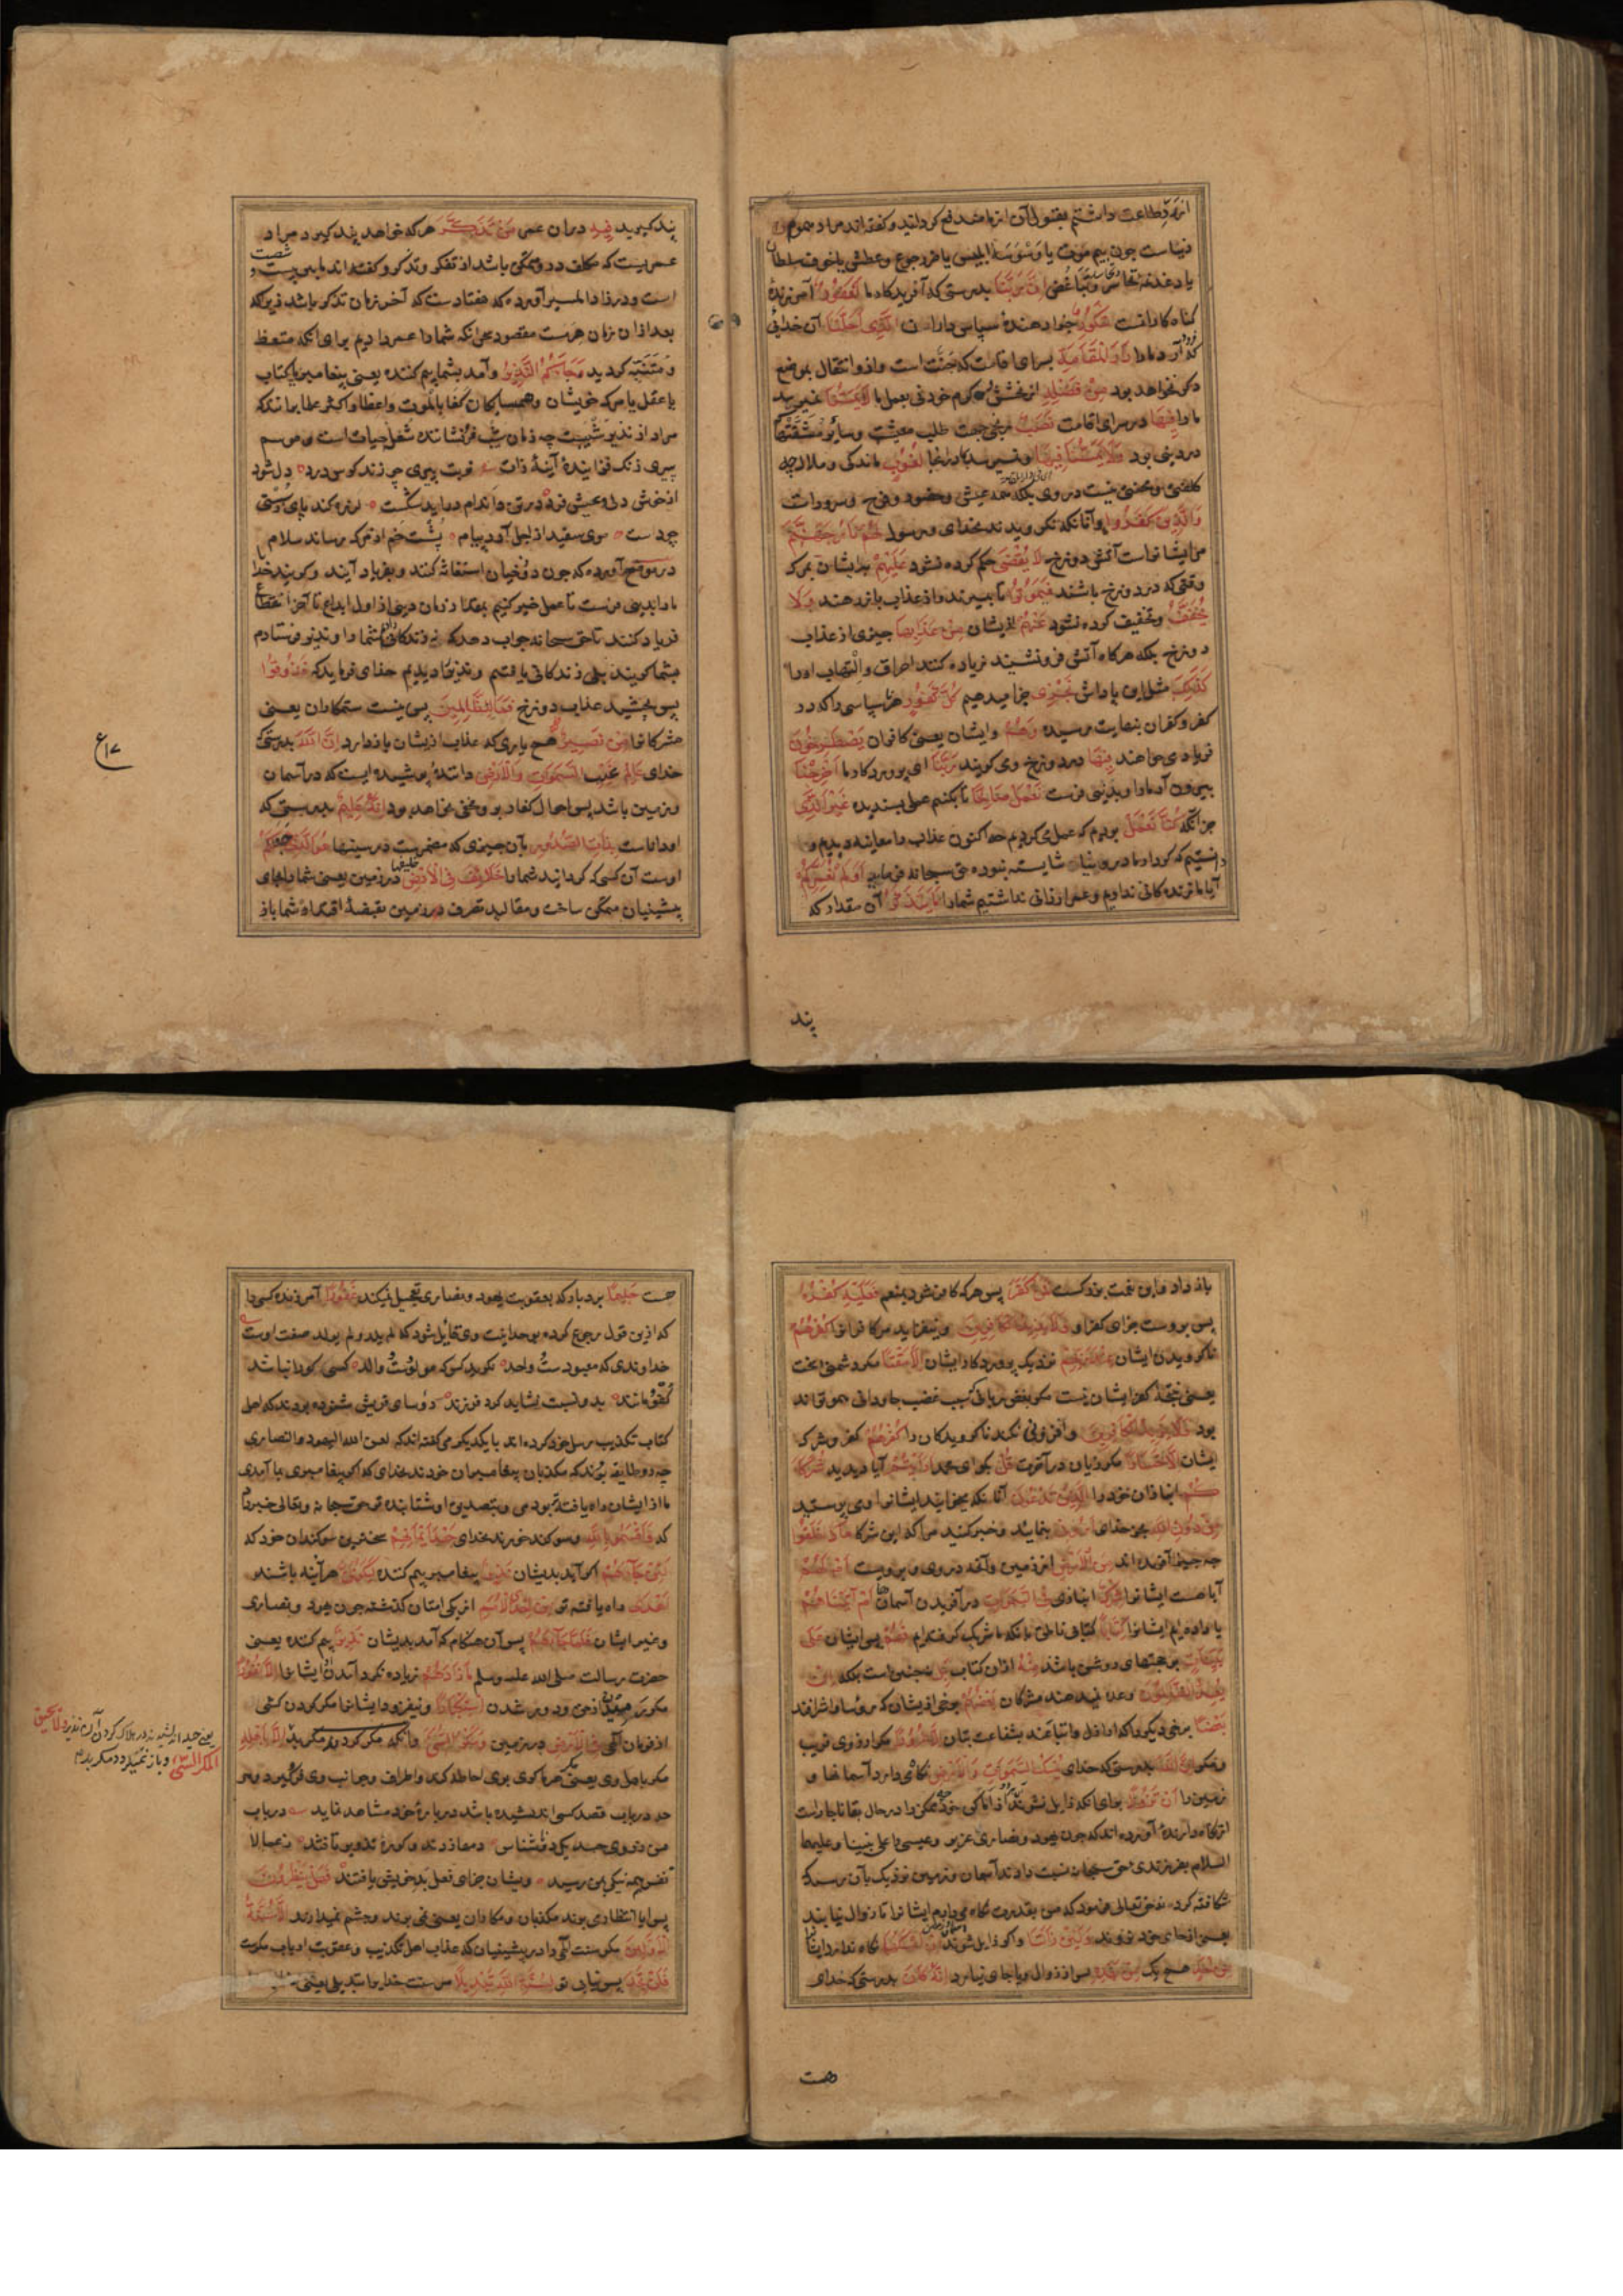 از رد طاعت داشتیم بقبول آن از ما مندفع کردانید و کفته اند مراد هموم
دنیاست چون بیم موت یا وسوسه ابلیس یا هردو جوع و عطش یا خوف سلطان
یا دغدغه تحاسد و تباغض اِنَّ رَبَّنَا بدرستی که آفریدکار ما لَغَفُورٌ آمرزندهٔ
کناه کارانست شَكُورٌ جزا دهندهٔ سپاس داران الَّذِي أَحَلَّنَا آن خدائی
که فرود آورد ما را دَارَ الْمُقَامَةِ بسرای اقامت که جنت است و ازو انتقال بموضع
دکر نخواهد بود مِنْ فَضْلِهِ از بخشش و کرم خود نی بعمل ما لَا يَمَسُّنَا نمیرسد
ما را فِيهَا در سرای اقامت نَصَبٌ رنجی جهت طلب معیشت و سایر مشقتها
در دینی بود وَلَا يَمَسُّنَا فِيهَا و نمیرسد ما را در اینجا لُغُوبٌ ماندکی و ملال چه
کلفتی و محنتی نیست در وی بلکه همه عیش و حضور و فرح و سرورات
وَالَّذِينَ كَفَرُوا و آنانکه نکرویدند بخدای و رسول لَهُمْ نَارُ جَهَنَّمَ
مر ایشانراست آتش دوزخ لَا يُقْضَى حکم کرده نشود عَلَيْهِمْ بر ایشان بمرک
وقتی که در دوزخ باشند فَيَمُوتُوا تا بمیرند و از عذاب باز رهند وَلَا
يُخَفَّفُ و تخفیف کرده نشود عَنْهُمْ از ایشان مِنْ عَذَابِهَا چیزی از عذاب
دوزخ بلکه هرکاه آتش فرو نشیند زیاده کنند احراق و التهاب او را
كَذَلِكَ مثل این پاداش نَجْزِي جزا میدهیم كُلَّ كَفُورٍ هر ناسپاسی را که در
کفر و کفران بنهایت رسیده وَهُمْ و ایشان یعنی کافران يَصْطَرِخُونَ
فریاد می خواهند فِيهَا در دوزخ و می کویند رَبَّنَا ای پروردکار ما أَخْرِجْنَا
بیرون آر ما را و بدنیی فرست نَعْمَلْ صَالِحًا تا بکنیم عملی پسندیده غَيْرَ الَّذِي
جز آنکه كُنَّا نَعْمَلُ بودیم که عمل می کردیم چه اکنون عذاب را معاینه دیدیم و
دانستیم که کردار ما در دنیا شایسته نبوده حق سبحانه فرماید أَوَلَمْ نُعَمِّرْكُمْ
آیا ما زندکانی ندادیم و عمر ارزانی نداشتیم شما را مَا يَتَذَكَّرُ آن مقدار که
پند
پند کیرید فِيهِ در ان عمر مَنْ تَذَكَّرَ هر که خواهد پند کیرد مراد
عمریست که مکلف در و ممکن باشد از تفکر و تذکر و کفته اند یا بیست و شصت
است و در زاد المسیر آورده که هفتادست که آخر زمان تذکر باشد زیرا که
بعد ازان زمان هرمست مقصود بحر آنکه شما را عمر دادیم برای آنکه متعظ
و متنبه کردید وَجَاءَكُمُ النَّذِيرُ و آمد بشما بیم کننده یعنی پیغامبر یا کتاب
یا عقل یا مرک خویشان و همسایکان کفا بالموت واعظا و اکثر علما برانند که
مراد از نذیر شیبست چه زمان شیب فرونشاننده شعل حیات است و موسم
پیری زنک فزایندهٔ آینهٔ ذات نوبت پیری چو زند کوس درد دل شود
از خوش دلی و عیش فرد در تن و اندام دراید شکست لرزه کند پای ز سستی
چو دست موی سفید از اجل آرد پیام پشت خم از مرک رساند سلام
در موضح آورده که چون دوزخیان استغاثه کنند و بفریاد آیند و کویند خدا
ما را بدینی فرست تا عمل خیر کنیم بمقدار زمان دینی از اول ابداع تا آخر انقطاع
فریاد کنند تا حق سبحانه جواب دهد که نه زندکانی دادم شما را و نذیر فرستادم
بشما کویند بلی زندکانی یافتیم و نذیر را دیدیم خدای فرماید که فَذُوقُوا
پس بچشید عذاب دوزخ فَمَا لِلظَّالِمِينَ پس نیست ستمکاران یعنی
مشرکانرا مِنْ نَصِيرٍ هیچ یاری که عذاب از ایشان باز دارد إِنَّ اللَّهَ بدرستی که
خدای عَالِمُ غَيْبِ السَّمَوَاتِ وَالْأَرْضِ دانندهٔ پوشیده ایست که در آسمان
و زمین باشد پس احوال کفار برو مخفی نخواهد بود إِنَّهُ عَلِيمٌ بدرستی که
او داناست بِذَاتِ الصُّدُورِ بآن چیزی که مضمرست در سینها هُوَ الَّذِي جَعَلَكُمْ
اوست آن کسی که کردانید شما را خَلَائِفَ خلیفها فِي الْأَرْضِ در زمین یعنی شما را بجای
پیشینیان ممکن ساخت و مقالید تصرف در زمین بقبضهٔ اقتدار شما باز
ع۱۷
باز داد و این نعمت بزرکست فَمَنْ كَفَرَ پس هر که کافر شود بمنعم فَعَلَيْهِ كُفْرُهُ
پس بروست جزای کفر او وَلَا يَزِيدُ الْكَافِرِينَ و نیفزاید مر کافرانرا كُفْرُهُمْ
ناکرویدن ایشان عِنْدَ رَبِّهِمْ نزدیک پروردکار ایشان إِلَّا مَقْتًا مکر دشمنی سخت
یعنی نتیجهٔ کفر ایشان نیست مکر بغض ربانی که سبب غضب جاودانی همو تواند
بود وَلَا يَزِيدُ الْكَافِرِينَ و افزونی نکند ناکرویدکان را كُفْرُهُمْ کفر و شرک
ایشان إِلَّا خَسَارًا مکر زیان در آخرت قُلْ بکو ای محمد أَرَأَيْتُمْ آیا دیدید شُرَكَاءَ
كُمُ انبازان خود را الَّذِينَ تَدْعُونَ آنانکه میخوانید ایشانرا و می پرستید
مِنْ دُونِ اللَّهِ بجز خدای أَرُونِي بنمایید و خبر کنید مرا که این شرکا مَاذَا خَلَقُوا
چه چیز آفریده اند مِنَ الْأَرْضِ از زمین و آنچه در وی و برویست أَمْ لَهُمْ
آیا هست ایشانرا شِرْكٌ انبازی فِي السَّمَوَاتِ در آفریدن آسمانها أَمْ آتَيْنَاهُمْ
یا داده ایم ایشانرا كِتَابًا کتابی ناطق بآنکه ما شریک کرفته ایم فَهُمْ پس ایشان عَلَى
بَيِّنَتٍ بر حجتهای روشن باشند مِنْهُ ازان کتاب بَلْ نچنین است بلکه إِنْ
يَعِدُ الظَّالِمُونَ وعده نمیدهند مشرکان بَعْضُهُمْ برخی از ایشان که رؤسا و اشرافند
بَعْضًا برخی دیکر را که اراذل و اتباعند بشفاعت بتان إِلَّا غُرُورًا مکر از روی فریب
و مکر إِنَّ اللَّهَ بدرستی که خدای يُمْسِكُ السَّمَوَاتِ وَالْأَرْضَ نکاه می دارد آسمانها و
زمین را أَنْ تَزُولَا برای آنکه زایل نشوند از اماکن خود چه ممکن را در حال بقا ناچارست
از نکاه دارندهٔ آورده اند که چون یهود و نصاری عزیر و عیسی را علی نبینا و علیهما
السلام بفرزندی حق سبحانه نسبت دادند آسمان و زمین نزدیک بآن رسید که
شکافته کردد حق تعالی فرمود که من بقدرت نکاه می دارم ایشانرا تا زوال نیابند
یعنی از جای خود نروند وَلَئِنْ زَالَتَا و اکر زایل شوند آسمان و زمین إِنْ أَمْسَكَهُمَا نکاه ندارد ایشانرا
مِنْ أَحَدٍ هیچ یک مِنْ بَعْدِهِ پس از زوال ویا جای نیابد إِنَّهُ كَانَ بدرستی که خدای
هست
هست حَلِيمًا بردبار که بعقوبت یهود و نصاری تعجیل نمیکند غَفُورًا آمرزنده کسی را
که ازین قول رجوع کرده بوحدانیت وی قایل شود که لم یلد و لم یولد صفت اوست
خداوندی که معبودست واحد نکوید کس که مولودست والد کسی کورا نباشد
کفو مانند بدو نسبت نشاید کرد فرزند رؤسای قریش شنوده بودند که اهل
کتاب تکذیب رسل خود کرده اند با یکدیکر می کفتند که لعن الله الیهود والنصاری
چه دو طایفه بودند که مکذبان پیغامبران خودند بخدای که اکر پیغامبری بما آمدی
ما از ایشان راه یافته تر بودمی و بتصدیق او شتابنده تر حق سبحانه و تعالی خبر داد
که وَأَقْسَمُوا بِاللَّهِ و سوکند خوردند بخدای جَهْدَ أَيْمَانِهِمْ سخترین سوکندان خود که
لَئِنْ جَاءَهُمْ اکر آید بدیشان نَذِيرٌ پیغامبر بیم کننده لَيَكُونُنَّ هرآینه باشند
أَهْدَى راه یافته تر مِنْ إِحْدَى الْأُمَمِ از یکی امتان کذشته چون یهود و نصاری
و غیر ایشان فَلَمَّا جَاءَهُمْ پس آن هنکام که آمد بدیشان نَذِيرٌ بیم کننده یعنی
حضرت رسالت صلی الله علیه وسلم مَا زَادَهُمْ زیاده نکرد آمدن او ایشانرا إِلَّا نُفُورًا
مکر رمیدن از حق و دور شدن اسْتِكْبَارًا و نیفزود ایشانرا مکر کردن کشی
از فرمان الهی فِي الْأَرْضِ در زمین وَمَكْرَ السَّيِّئِ و آنکه مکر کردند مکر بد إِلَّا بِأَهْلِهِ
مکر باهل وی یعنی مکر هر ماکری بوی احاطه کند و اطراف و جوانب وی فرو کیرد و هر
چه در باب قصد کسی اندیشیده باشد در بارهٔ خود مشاهده نماید در باب
فَهَلْ يَنْظُرُونَ
پس ایا انتظار می برند مکذبان و مکاران یعنی نمی برند و چشم نمیدارند إِلَّا سُنَّةَ
الْأَوَّلِينَ مکر سنت الهی را در پیشینیان که عذاب اهل تکذیب و عقوبت ارباب مکرست
فَلَنْ تَجِدَ پس نیابی تو لِسُنَّةِ اللَّهِ تَبْدِيلًا مر سنت خدایرا تبدیلی یعنی
وَلَا يَحِيقُ
الْمَكْرُ السَّيِّئُ و باز نمیکردد مکر بد